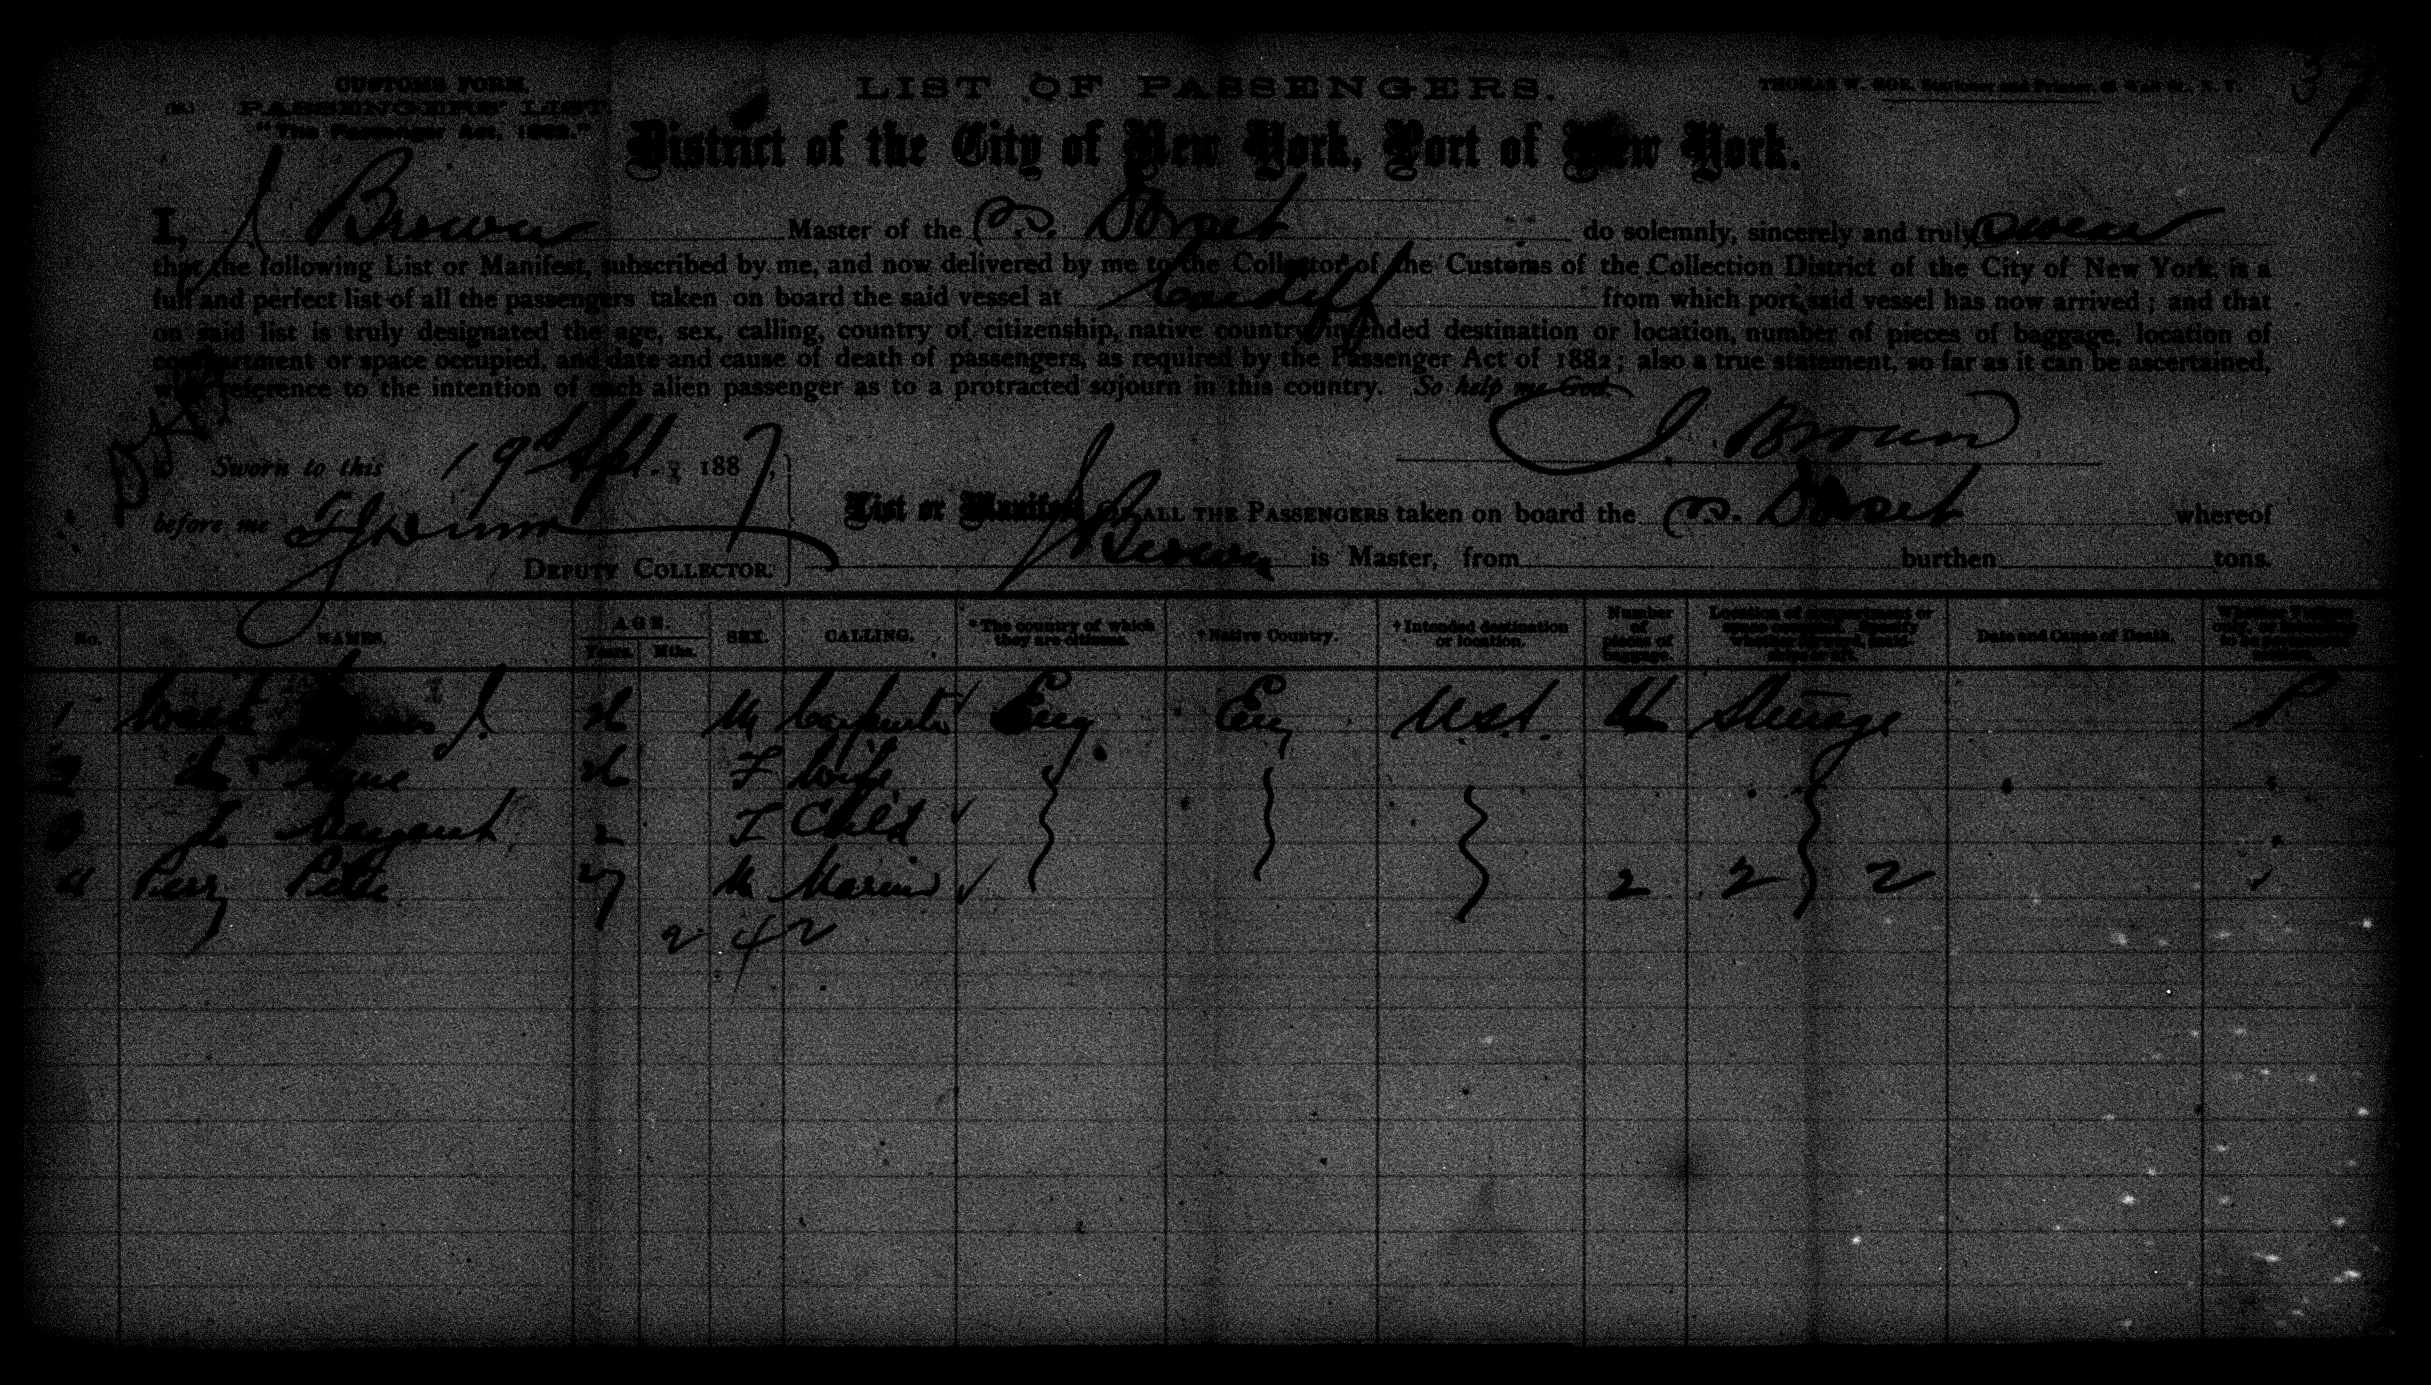 CUSTOMS FORM.
PASSENGERS' LIST
"The Passenger Act, 1882."
LIST OF PASSENGERS.
37
District of the City of New York, Port of New York.
I, J Brown Master of the SS. Dorset do solemnly, sincerely and truly swear
that the following List or Manifest, subscribed by me, and now delivered by me to the Collector of the Customs of the Collection District of the City of New York, is a
full and perfect list of all the passengers taken on board the said vessel at Cardiff from which port said vessel has now arrived; and that
on said list is truly designated the age, sex, calling, country of citizenship, native country, intended destination or location, number of pieces of baggage, location of
compartment or space occupied, and date and cause of death of passengers, as required by the Passenger Act of 1882; also a true statement, so far as it can be ascertained,
with reference to the intention of each alien passenger as to a protracted sojourn in this country. So help me God.
J. Brown
Sworn to this 19th Sept. 1887,
before me
DEPUTY COLLECTOR.
List or Manifest OF ALL THE PASSENGERS taken on board the SS. Dorset whereof
J Brown is Master, from burthen tons.
No. NAMES. AGE. Years. Mths. SEX. CALLING. * The country of which they are citizens. † Native Country. † Intended destination or location. Number of pieces of baggage. Location of compartment or Date and Cause of Death.
1 J. M Carpenter Eng Eng U.S.A. Steerage P
do F Wife
do Margaret 2 F Child
4 Peter 27 M 2 2 2
2 4 2